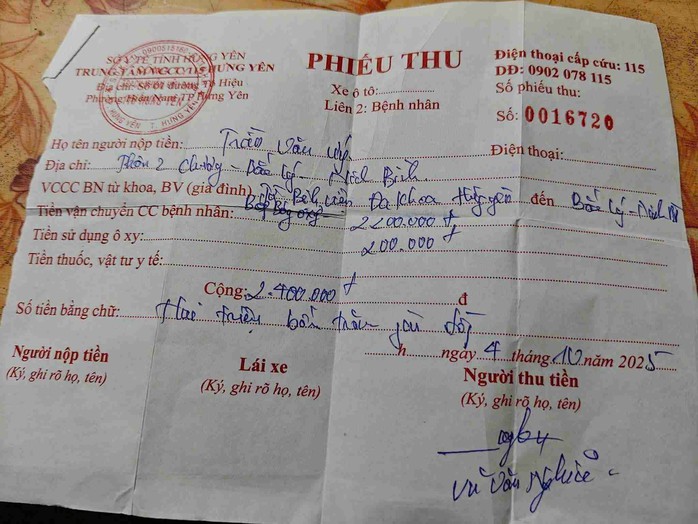 SỞ Y TẾ TỈNH HƯNG YÊN
TRUNG TÂM VCCC 115 HƯNG YÊN
Địa chỉ: Số 01 đường Tô Hiệu
Phường Hiến Nam, TP Hưng Yên
PHIẾU THU
Xe ô tô:
Liên 2: Bệnh nhân
Điện thoại cấp cứu: 115
DĐ: 0902 078 115
Số phiếu thu:
Số: 0016720
Họ tên người nộp tiền: Trần Văn
Điện thoại:
Địa chỉ: Thôn 2 - Bắc Lý - Ninh Bình
VCCC BN từ khoa, BV (gia đình) Bệnh viện Đa khoa Hưng yên đến Bắc Lý - Ninh
Tiền vận chuyển CC bệnh nhân: 2200.000đ
Tiền sử dụng ô xy: 200.000đ
Tiền thuốc, vật tư y tế:
Cộng: 2.400.000đ đ
Số tiền bằng chữ: Hai triệu bốn trăm đồng
h ngày 4 tháng 10 năm 2025
Người nộp tiền
(Ký, ghi rõ họ, tên)
Lái xe
(Ký, ghi rõ họ, tên)
Người thu tiền
(Ký, ghi rõ họ, tên)
Vũ Văn